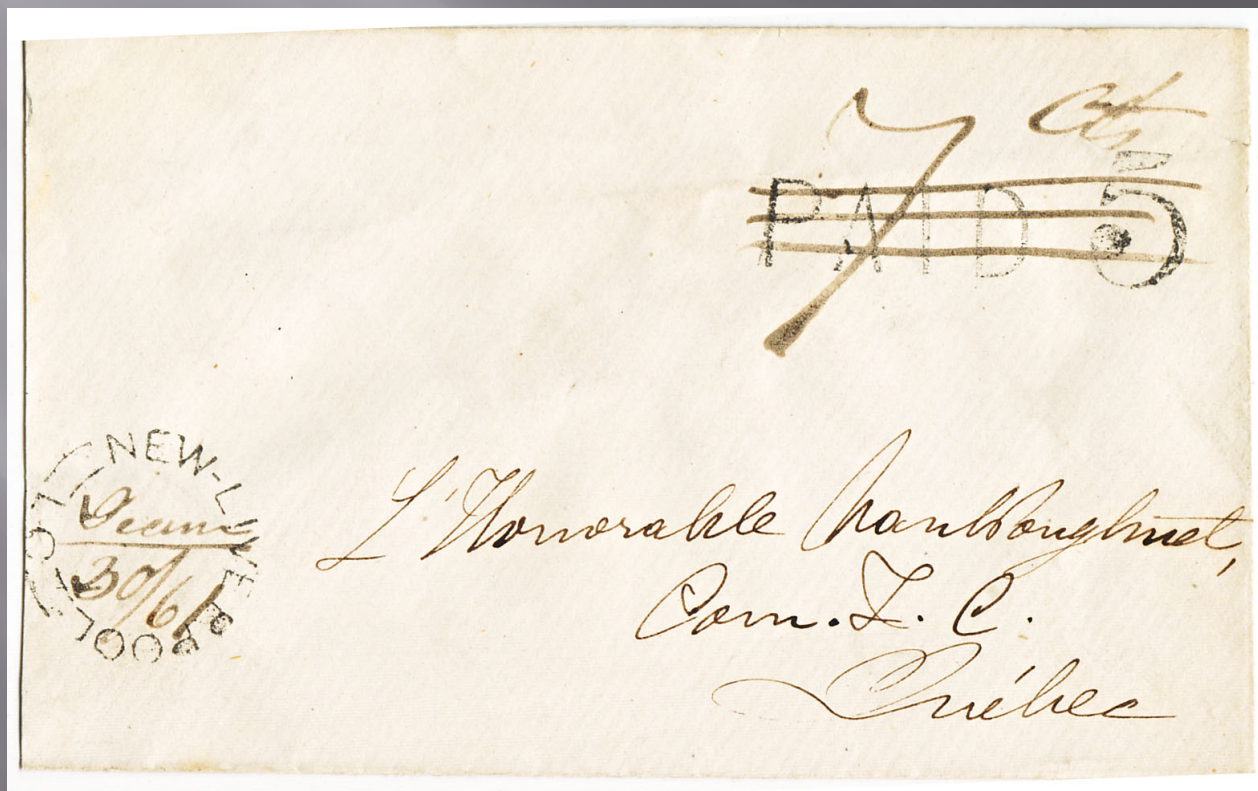 7 Cts
PAID 5
NEW-LIVERPOOL
30/61
L'Honorable VanKoughnet,
Com. T. C.
Québec